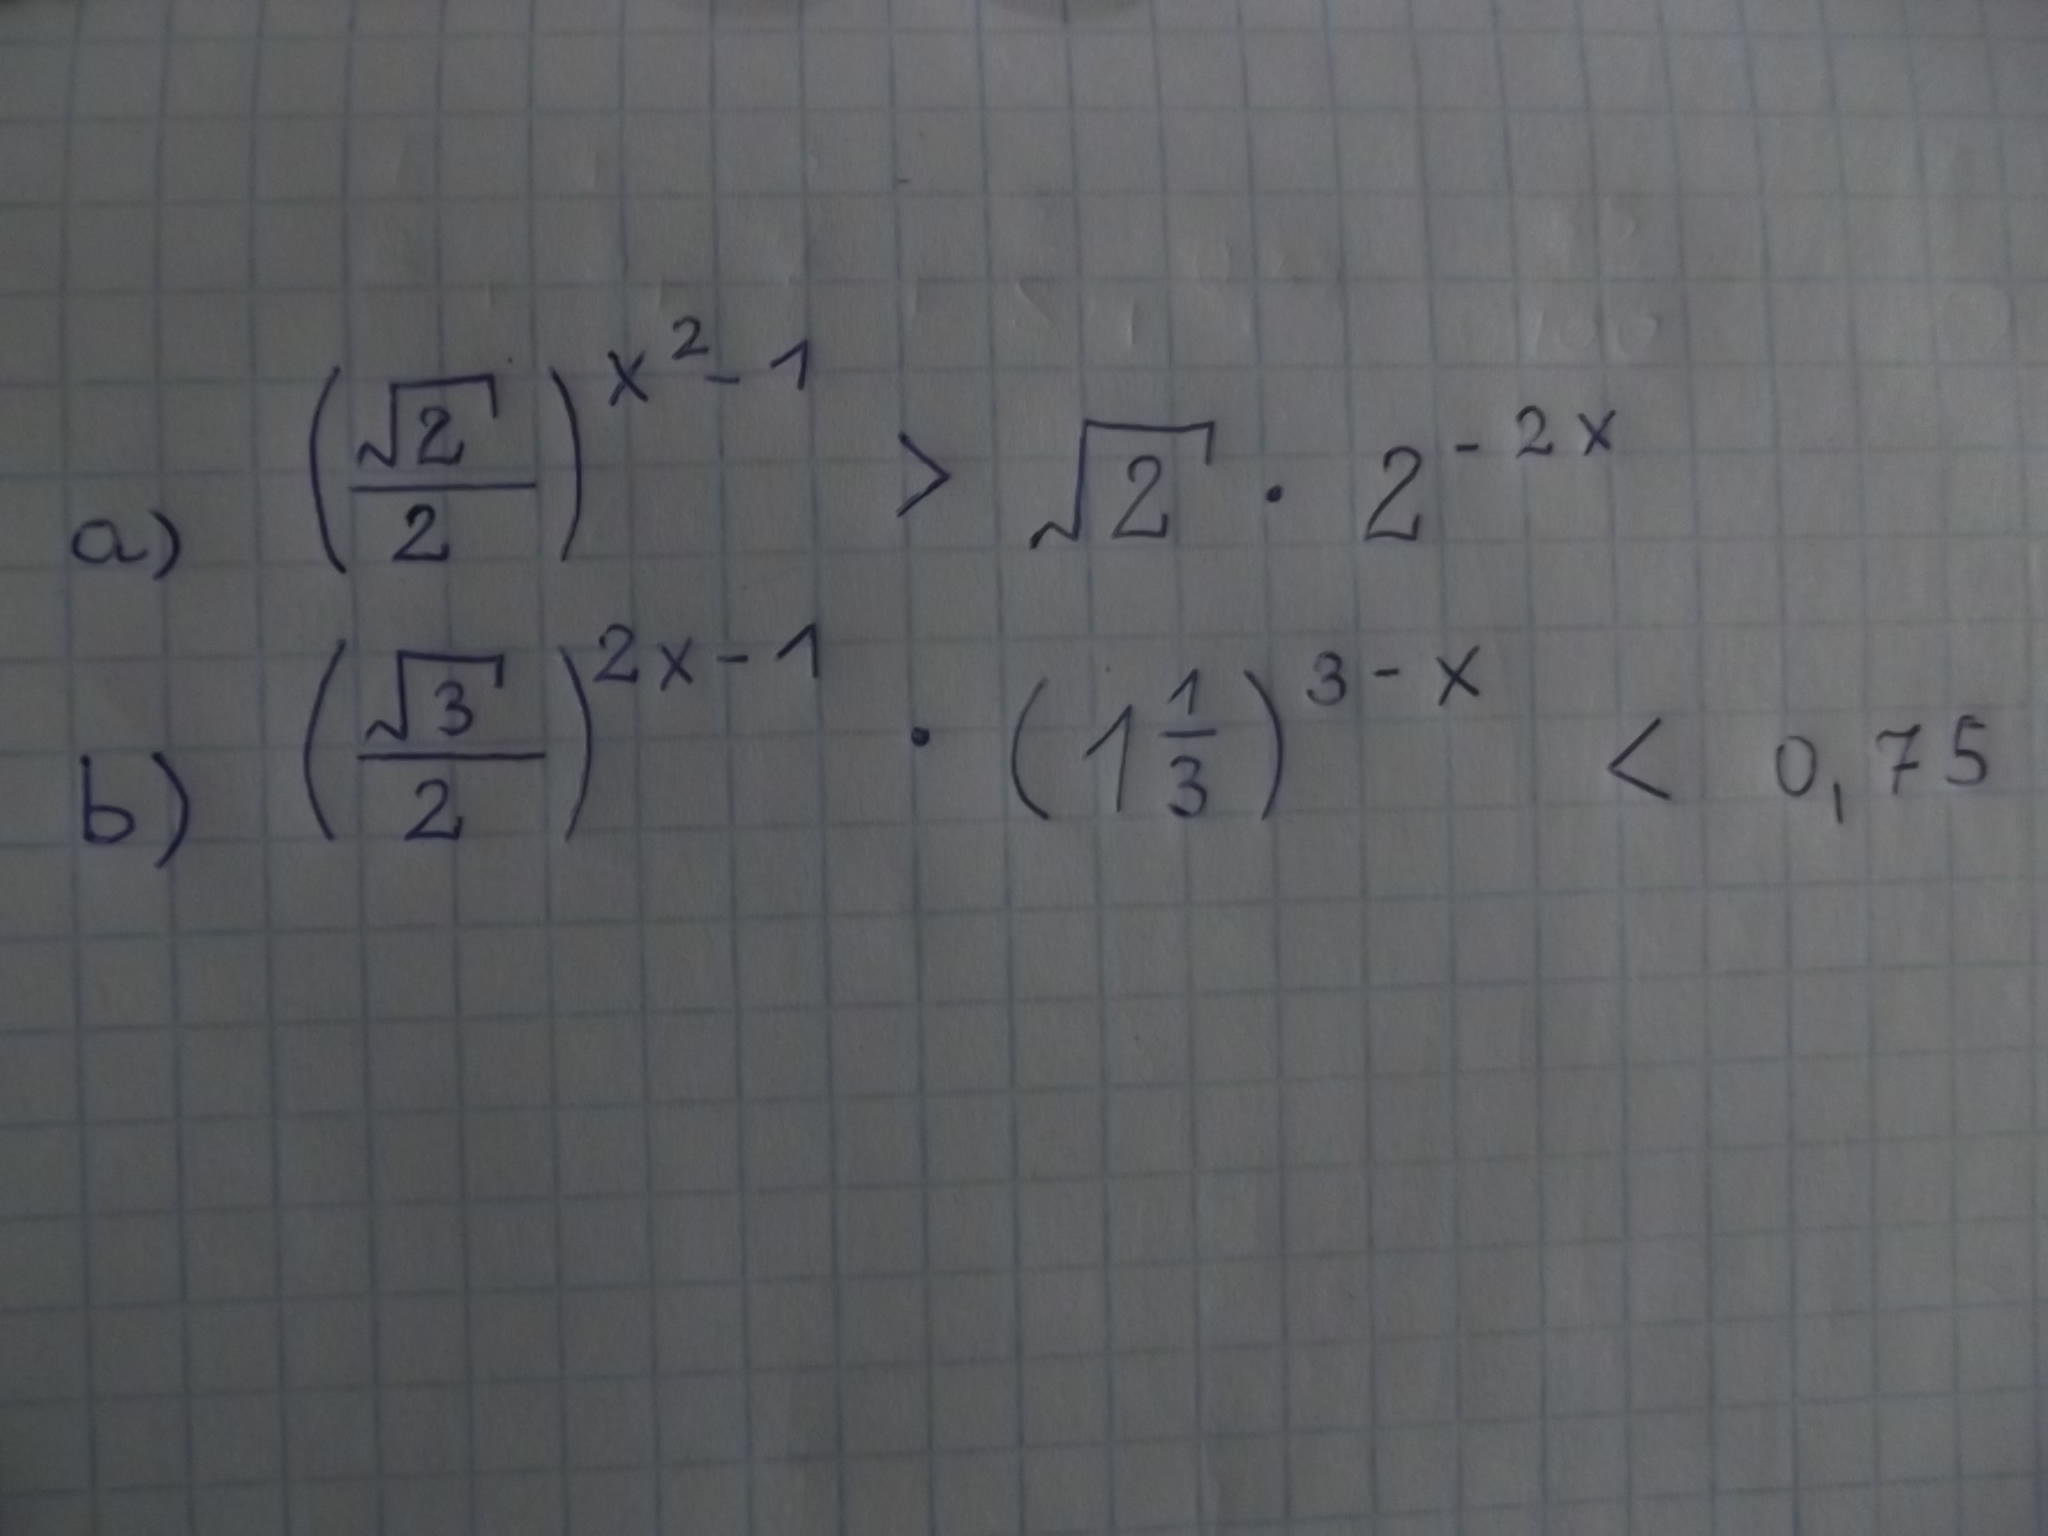 a) (√2/2)^(x²-1) > √2 · 2^(-2x)
b) (√3/2)^(2x-1) · (1 1/3)^(3-x) < 0,75